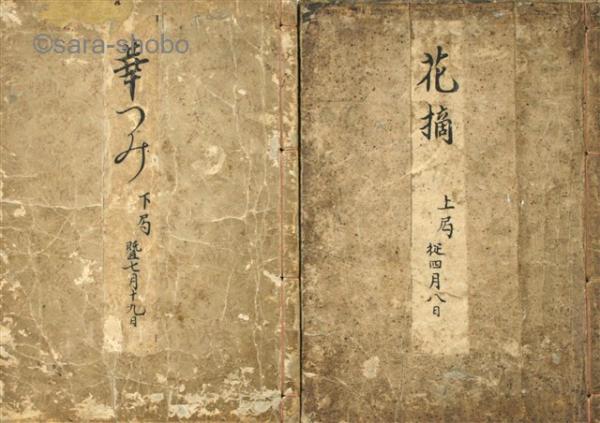 花摘
上局
従四月八日
華つみ
下局
曁七月十九日
©sara-shobo